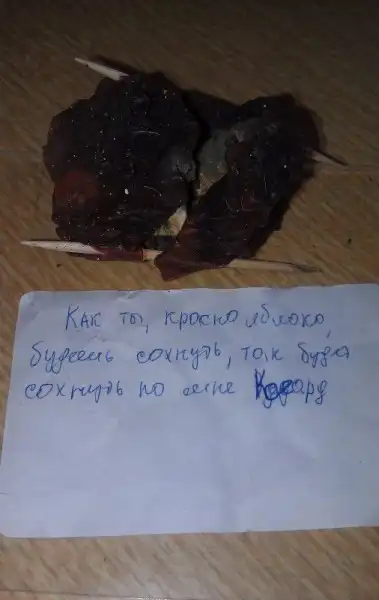 Как ты, красно яблоко,
будешь сохнуть, так буде
сохнуть по мне